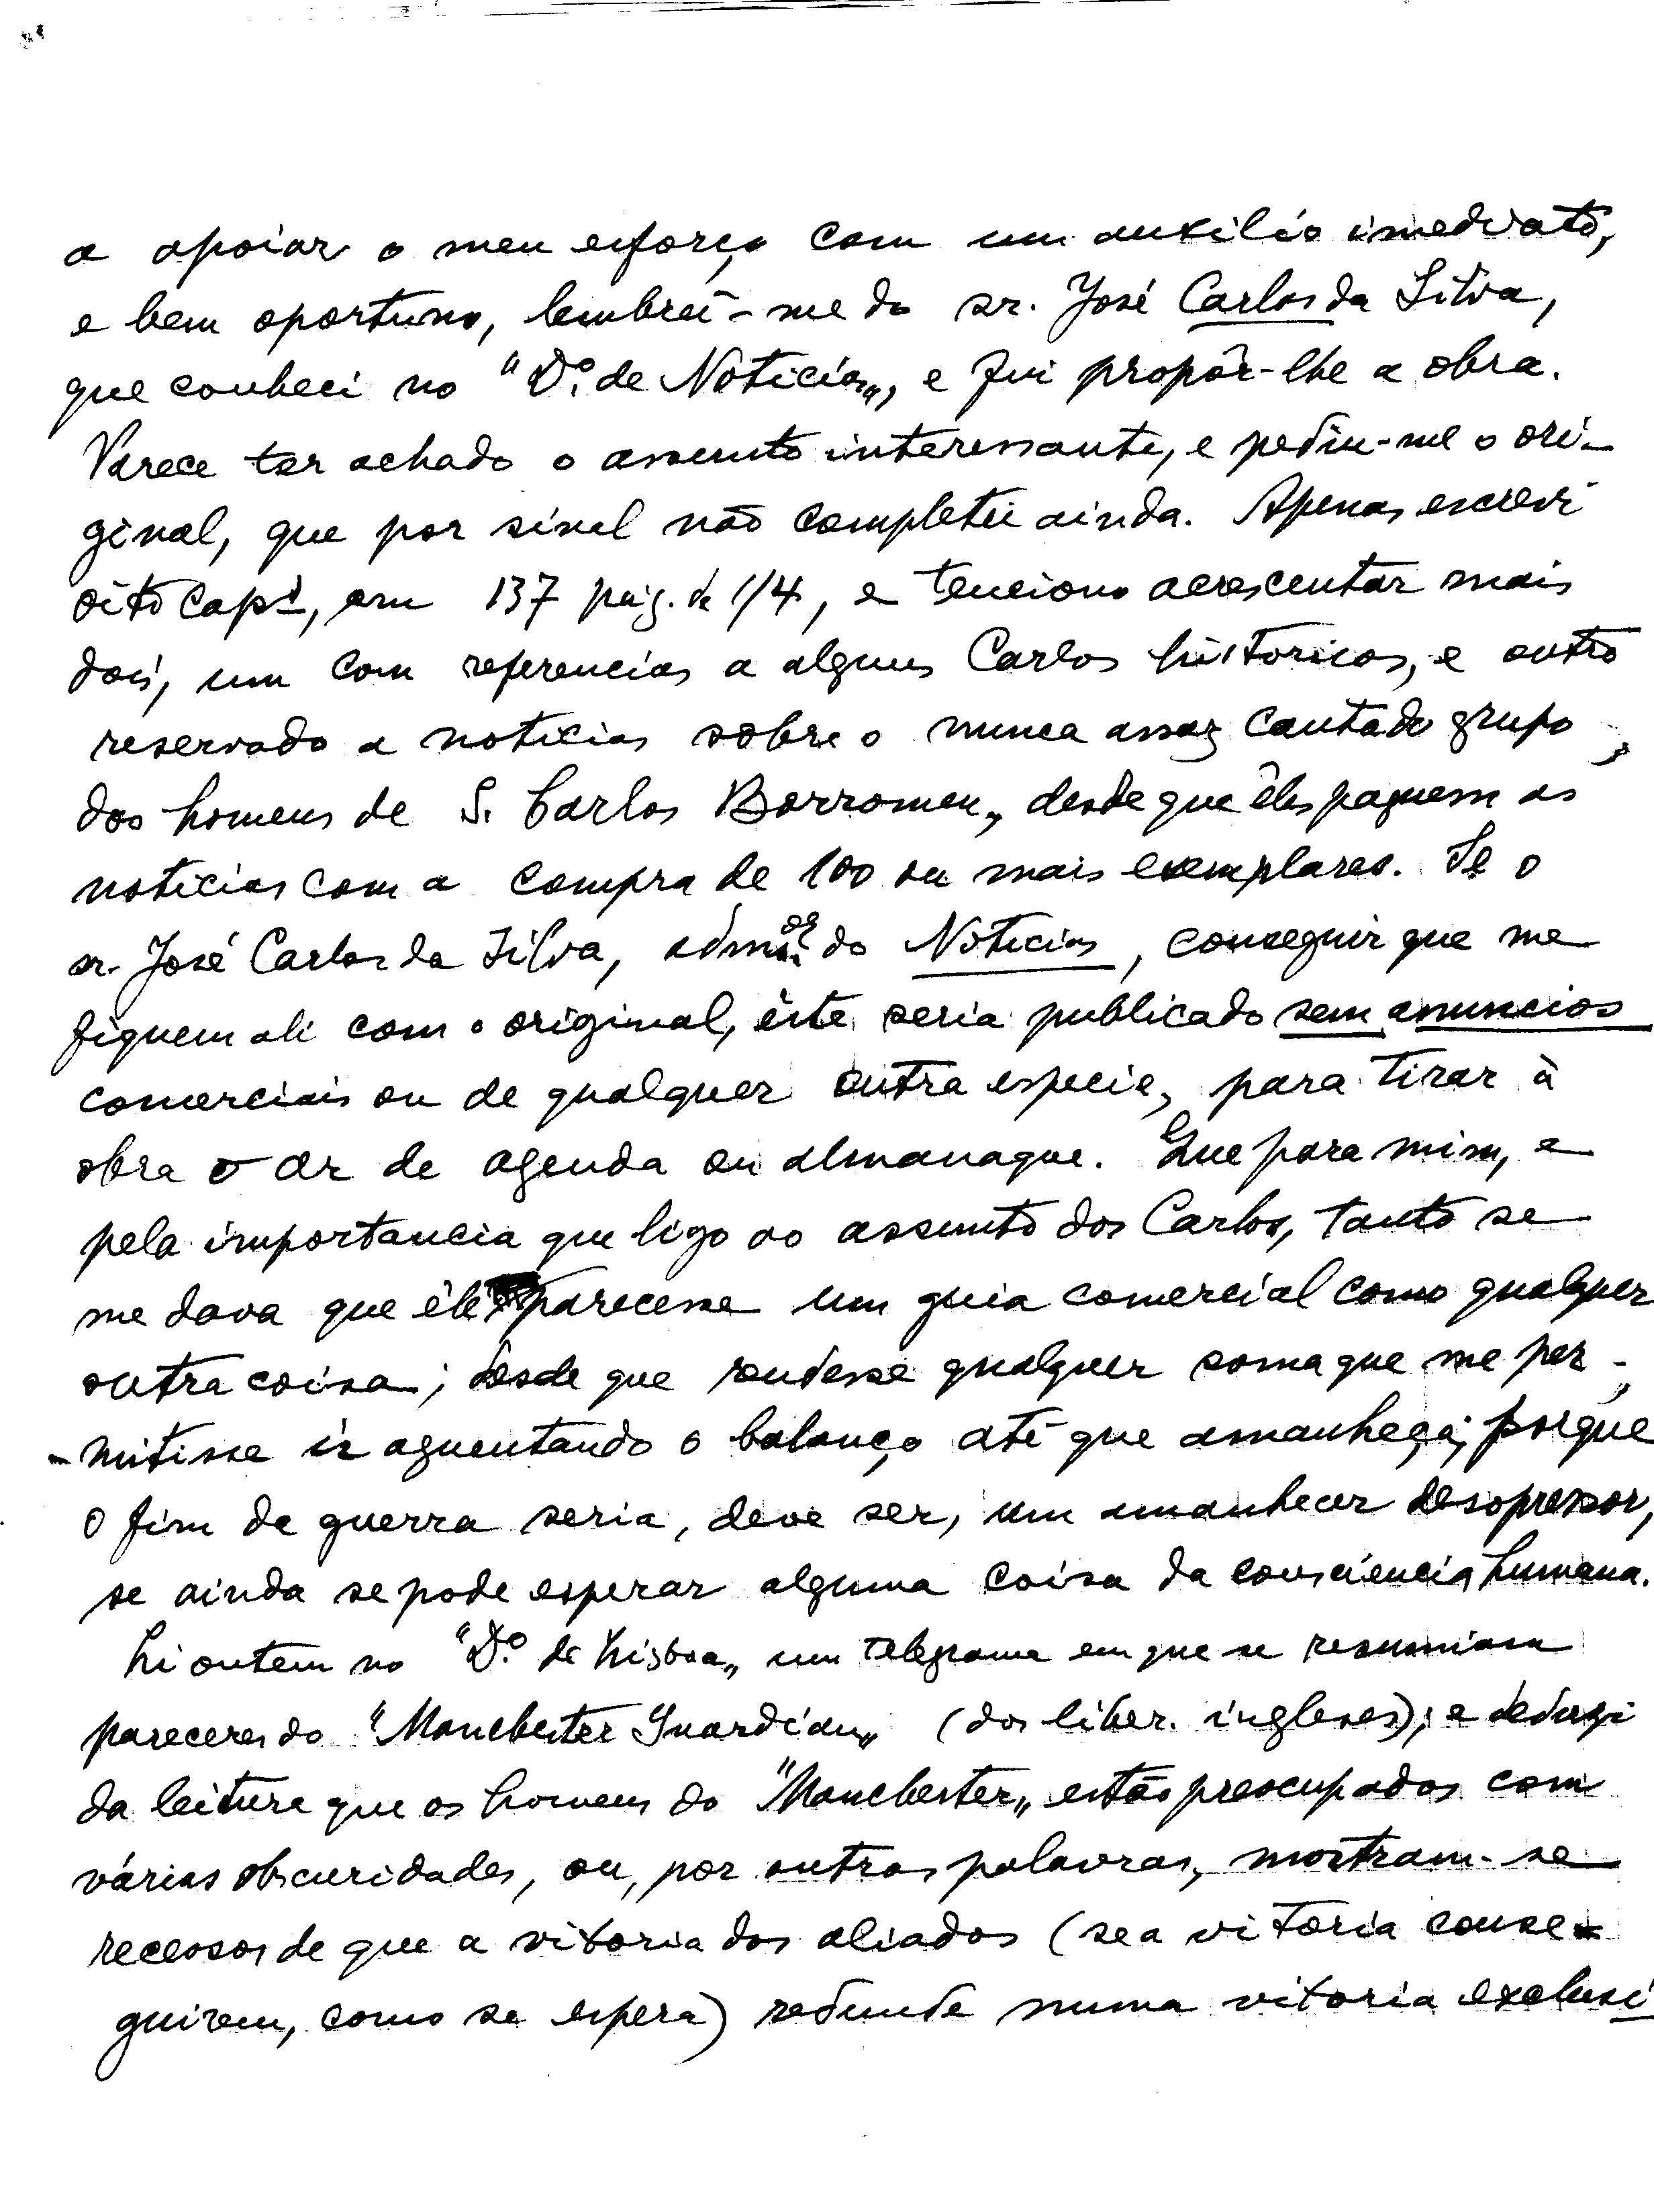 a apoiar o meu esforço com um auxilio imediato,
e bem oportuno, lembrei-me do sr. José Carlos da Silva,
que conheci no "D.º de Noticias", e fui propôr-lhe a obra.
Parece ter achado o assunto interessante, e pediu-me o ori-
ginal, que por sinal não completei ainda. Apenas escrevi
oito caps, em 137 pág. de 1/4, e tenciono acrescentar mais
dois, um com referencias a alguns Carlos históricos, e outro
reservado a noticias sobre o nunca assaz cantado grupo
dos homens de S. Carlos Borromeu, desde que êles paguem as
noticias com a compra de 100 ou mais exemplares. Se o
sr. José Carlos da Silva, admor. do Noticias, conseguir que me
fiquem ali com o original, êste seria publicado sem anuncios
comerciais ou de qualquer outra especie, para tirar à
obra o ar de agenda ou almanaque. Que para mim, e
pela importancia que ligo ao assunto dos Carlos, tanto se
me dava que êle parecesse um guia comercial como qualquer
outra coisa; desde que rendesse qualquer soma que me per-
-mitisse ir aguentando o balanço até que amanheça; porque
o fim da guerra seria, deve ser, um amanhecer desopressor,
se ainda se pode esperar alguma coisa da consciencia humana.
Li ontem no "D.º de Lisboa" um telegrama em que se resumiam
pareceres do "Manchester Guardian" (dos liber. ingleses); e deduzi
da leitura que os homens do "Manchester" estão preocupados com
várias obscuridades, ou, por outras palavras, mostram-se
receosos de que a vitoria dos aliados (se a vitoria conse-
guirem, como se espera) redunde numa vitoria exclusi